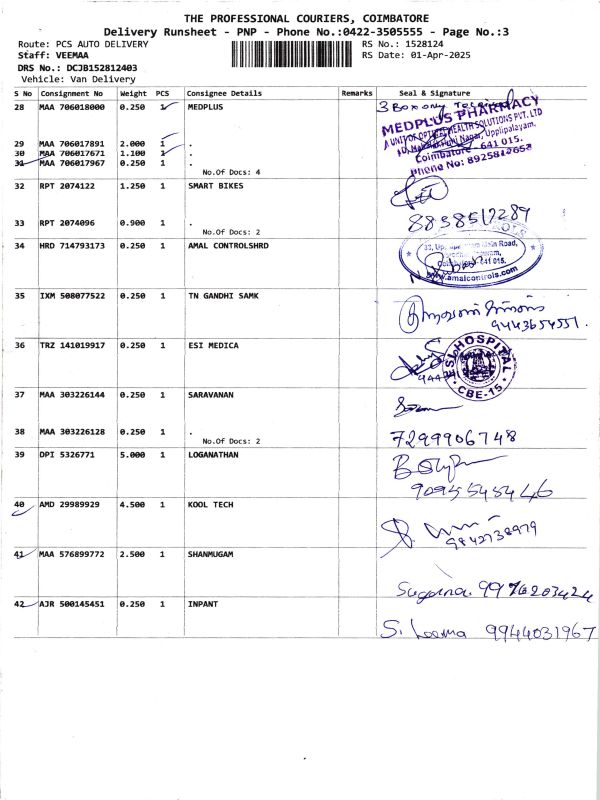 THE PROFESSIONAL COURIERS, COIMBATORE
Delivery Runsheet - PNP - Phone No.:0422-3505555 - Page No.:3
Route: PCS AUTO DELIVERY
RS No.: 1528124
Staff: VEEMAA
RS Date: 01-Apr-2025
DRS No.: DCJB152812403
Vehicle: Van Delivery
S No Consignment No Weight PCS Consignee Details Remarks Seal & Signature
28 MAA 706018000 0.250 1 MEDPLUS
3 Box only
MEDPLUS PHARMACY
A UNIT OF OPTIVAL HEALTH SOLUTIONS PVT. LTD
Nagar, Upplipalayam,
Coimbatore - 641 015.
Phone No: 8925812658
29 MAA 706017891 2.000 1 .
30 MAA 706017671 1.100 1 .
31 MAA 706017967 0.250 1 .
No.Of Docs: 4
32 RPT 2074122 1.250 1 SMART BIKES
33 RPT 2074096 0.900 1 .
No.Of Docs: 2
8838517289
34 HRD 714793173 0.250 1 AMAL CONTROLSHRD
Main Road,
641 015.
www.amalcontrols.com
35 IXM 508077522 0.250 1 TN GANDHI SAMK
9443654551.
36 TRZ 141019917 0.250 1 ESI MEDICA
HOSPITAL
CBE-15
37 MAA 303226144 0.250 1 SARAVANAN
38 MAA 303226128 0.250 1 .
No.Of Docs: 2
7299906748
39 DPI 5326771 5.000 1 LOGANATHAN
9095545446
40 AMD 29989929 4.500 1 KOOL TECH
9842738979
41 MAA 576899772 2.500 1 SHANMUGAM
Suganna. 9976203424
42 AJR 500145451 0.250 1 INPANT
S. Leema 9944031967